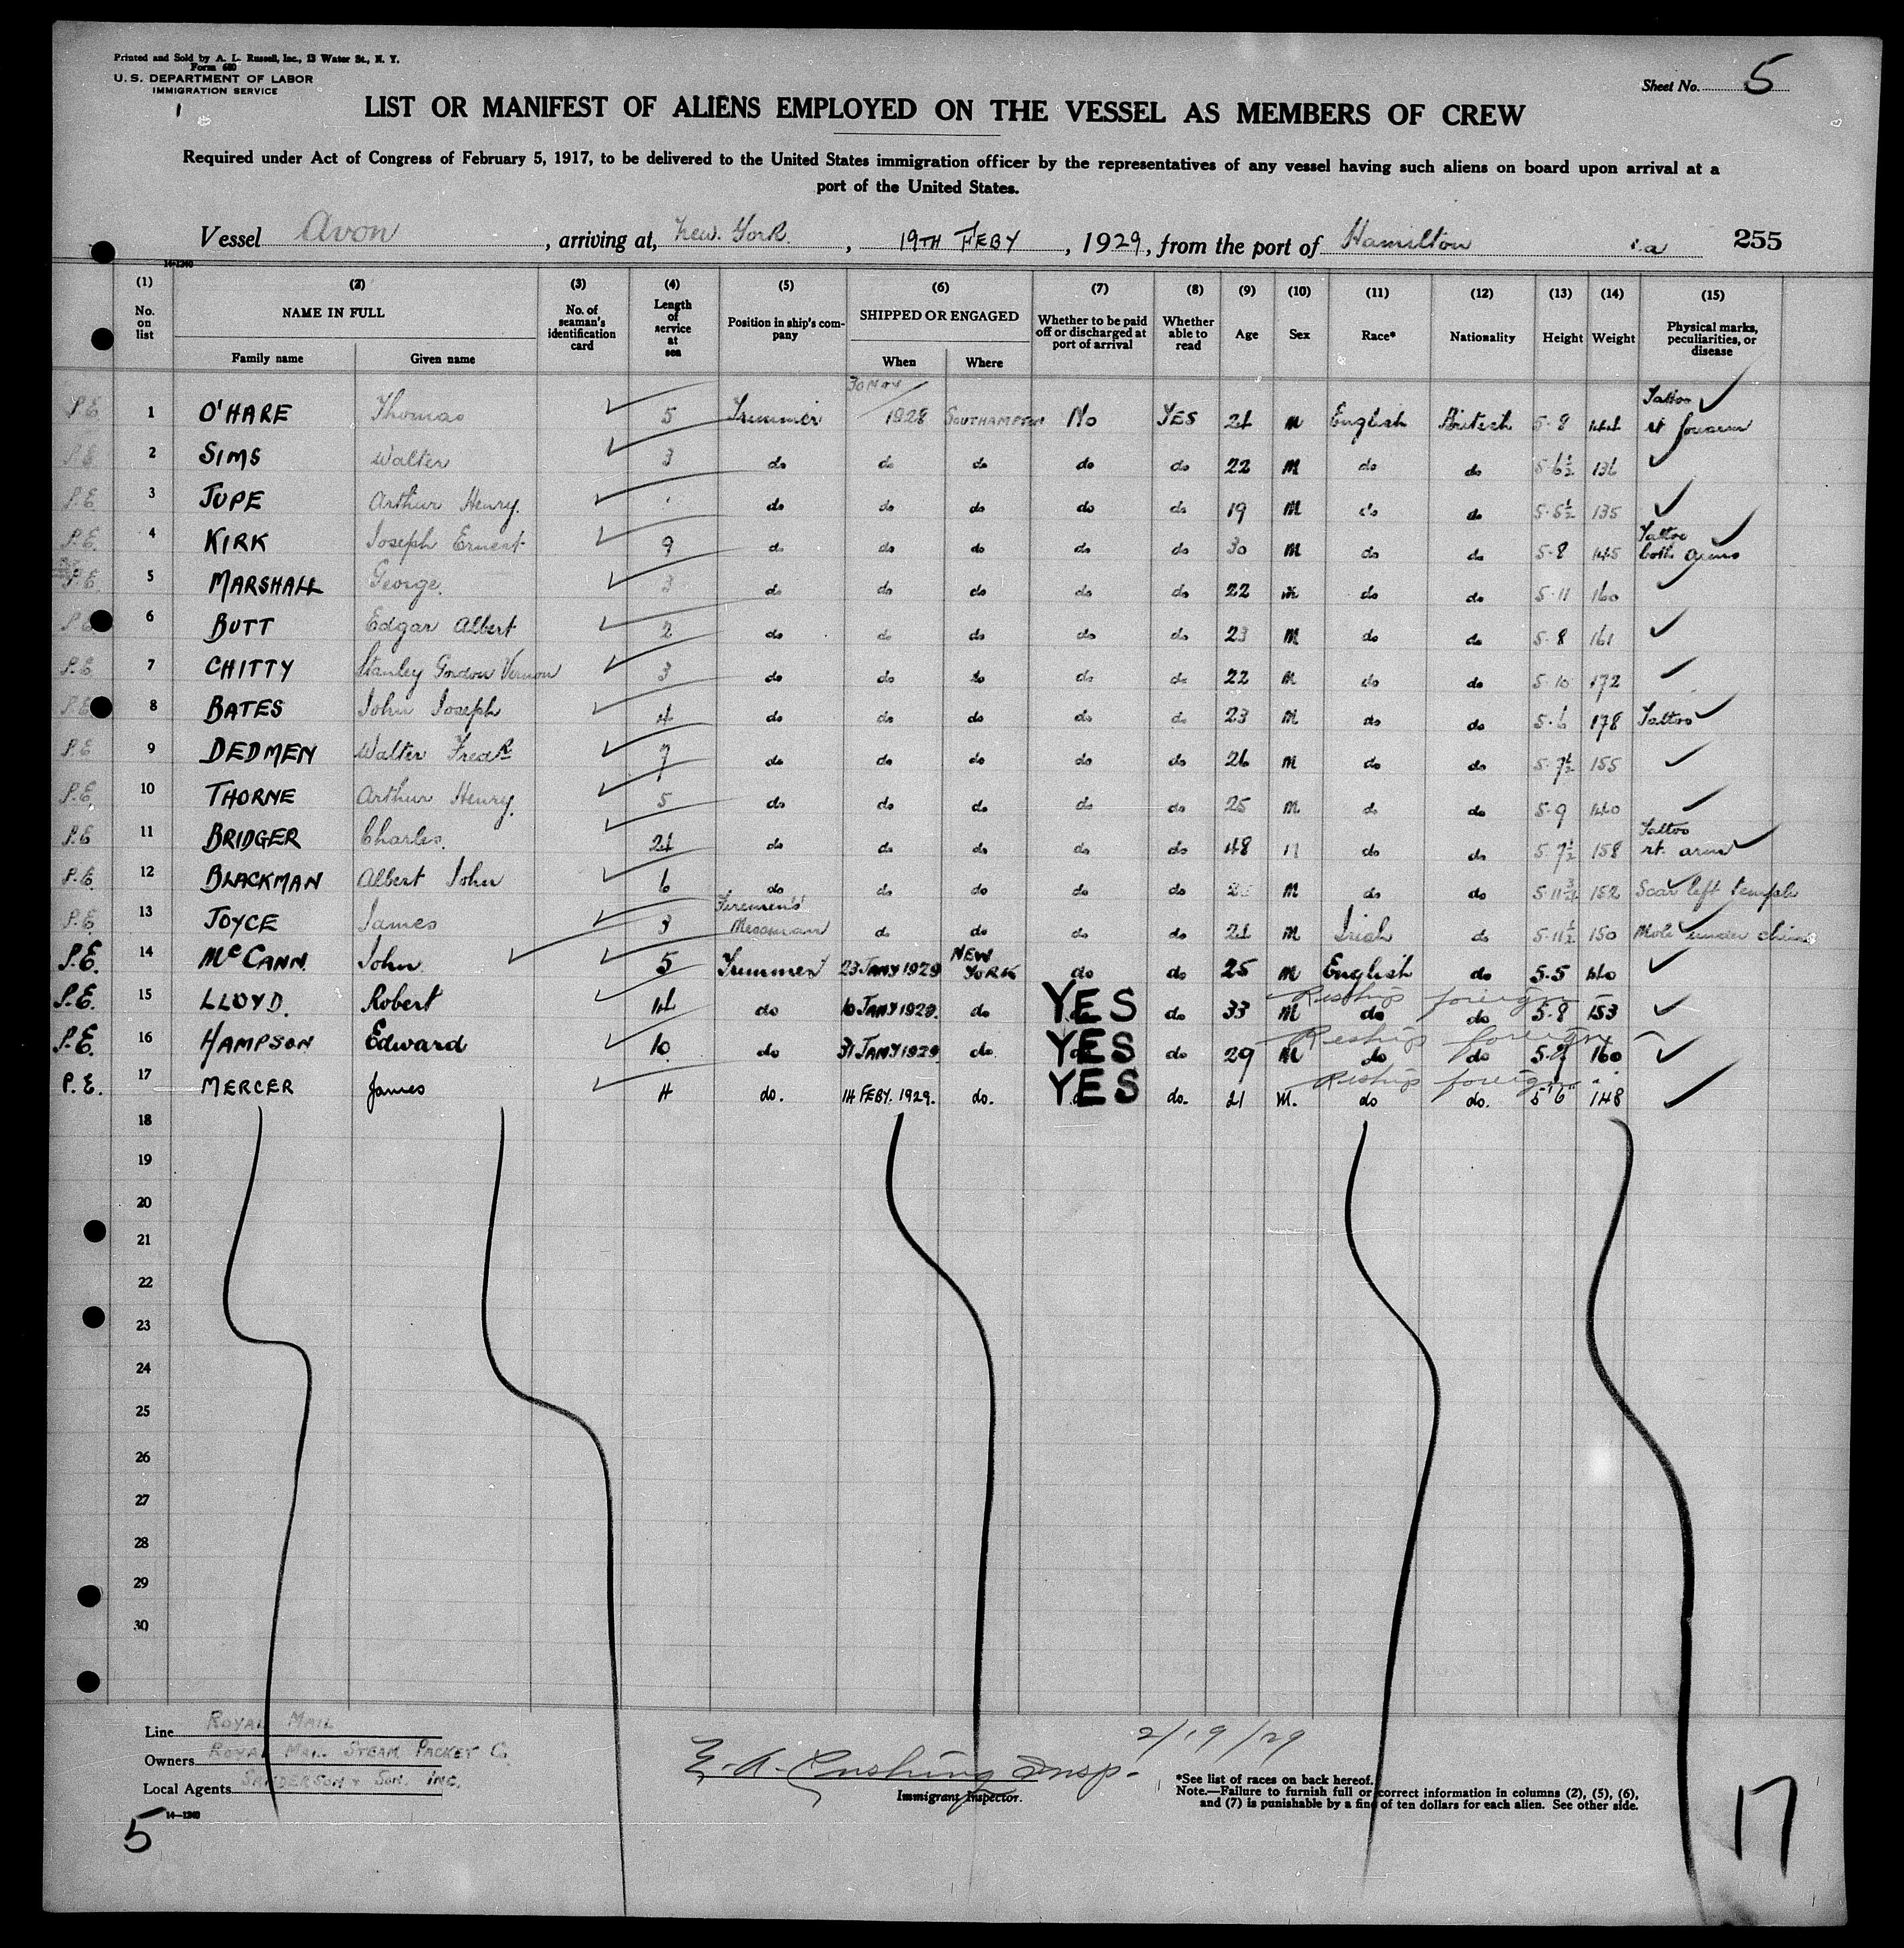 Printed and Sold by A. L. Russell, Inc., 13 Water St., N. Y.
Form 680
U. S. DEPARTMENT OF LABOR
IMMIGRATION SERVICE
Sheet No. 5
LIST OR MANIFEST OF ALIENS EMPLOYED ON THE VESSEL AS MEMBERS OF CREW
Required under Act of Congress of February 5, 1917, to be delivered to the United States immigration officer by the representatives of any vessel having such aliens on board upon arrival at a
port of the United States.
Vessel Avon, arriving at, New. York., 19TH FEBY, 1929, from the port of Hamilton 255
14-1240
(1) No. on list
(2) NAME IN FULL Family name Given name
(3) No. of seaman's identification card
(4) Length of service at sea
(5) Position in ship's company
(6) SHIPPED OR ENGAGED When Where
(7) Whether to be paid off or discharged at port of arrival
(8) Whether able to read
(9) Age
(10) Sex
(11) Race*
(12) Nationality
(13) Height
(14) Weight
(15) Physical marks, peculiarities, or disease
P.E. 1 O'HARE Thomas 5 Trimmer 30 Nov 1928 SOUTHAMPTON No YES 24 M English British 5-8 144 Tattoo rt forearm
P.E. 2 SIMS Walter 3 do do do do do 22 M do do 5-6½ 136
P.E. 3 JUPE Arthur Henry. do do do do do 19 M do do 5-5½ 135
P.E. 4 KIRK Joseph Ernest 9 do do do do do 30 M do do 5-8 145 Tattoo both arms
P.E. 5 MARSHALL George. 3 do do do do do 22 M do do 5-11 160
P.E. 6 BUTT Edgar Albert 2 do do do do do 23 M do do 5-8 161
P.E. 7 CHITTY Stanley Gordon Vernon 3 do do do do do 22 M do do 5-10 172
P.E. 8 BATES John Joseph 4 do do do do do 23 M do do 5-6 178 Tattoo
P.E. 9 DEDMEN Walter Fredk 7 do do do do do 26 M do do 5-7½ 155
P.E. 10 THORNE Arthur Henry. 5 do do do do do 25 M do do 5-9 140
P.E. 11 BRIDGER Charles. 24 do do do do do 48 M do do 5-7½ 158 Tattoo rt. arm
P.E. 12 BLACKMAN Albert John 6 do do do do do M do do 5-11¾ 152 Scar left temple
P.E. 13 JOYCE James 3 Firemen's Messman do do do do 24 M Irish do 5-11½ 150 Mole under chin
P.E. 14 McCANN. John. 5 Trimmer 23 JANY 1929 NEW YORK do do 25 M English do 5-5 140
P.E. 15 LLOYD. Robert 14 do 10 JANY 1929. do YES do 33 M do do 5-8 153 Reships foreign
P.E. 16 HAMPSON Edward 10 do 31 JANY 1929 do. YES do 29 M do do 5-9 160 Reships foreign
P.E. 17 MERCER James 4 do. 14 FEBY. 1929. do. YES do. 21 M. do do. 5'6" 148 Reships foreign
18
19
20
21
22
23
24
25
26
27
28
29
30
Line ROYAL MAIL
Owners ROYAL MAIL STEAM PACKET Co.
Local Agents SANDERSON & SON. INC.
14-1240
5
E. A. Cushing Insp. 2/19/29
Immigrant Inspector.
*See list of races on back hereof.
Note.—Failure to furnish full or correct information in columns (2), (5), (6),
and (7) is punishable by a fine of ten dollars for each alien. See other side.
17